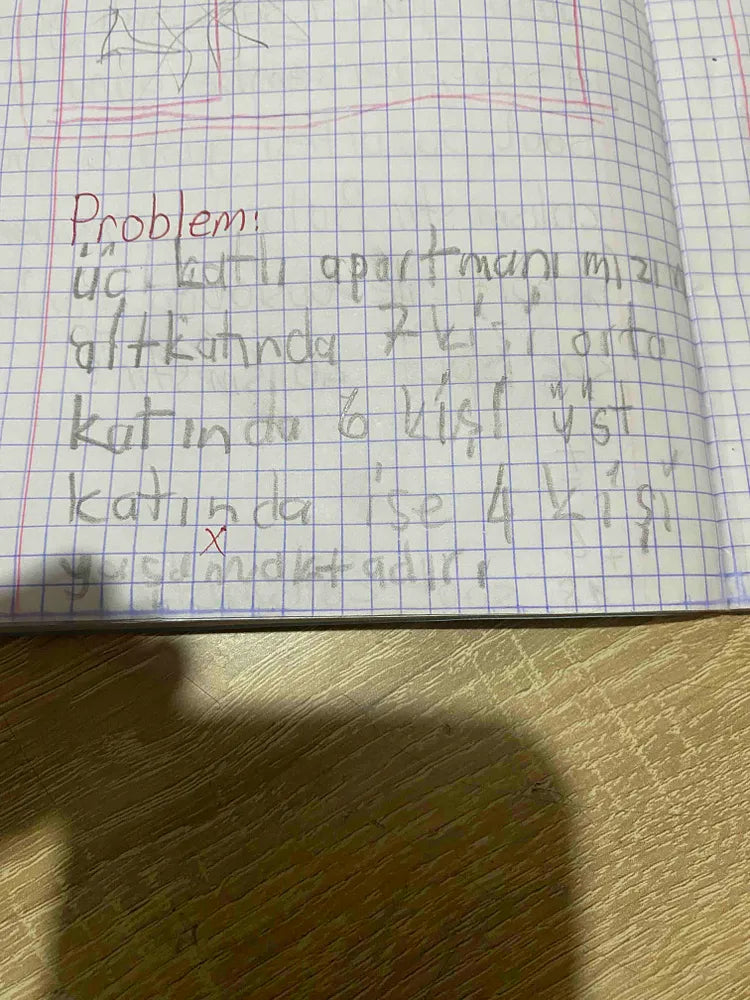 Problem:
üç katlı apartmanımızın
altkatında 7 kişi orta
katında 6 kişi üst
katında ise 4 kişi
x
yaşamaktadır.